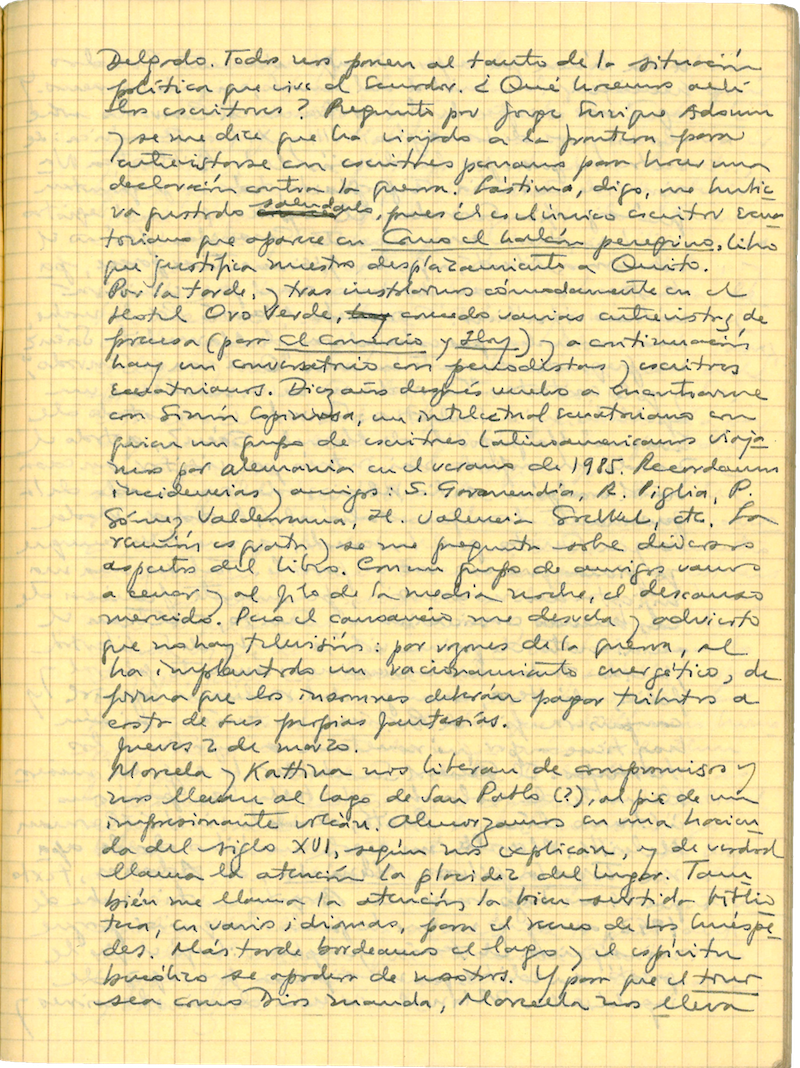 Delgado. Todos nos ponen al tanto de la situación
política que vive el Ecuador. ¿Qué hacemos aquí
los escritores? Pregunto por Jorge Enrique Adoum
y se me dice que ha viajado a la frontera para
entrevistarse con escritores peruanos para hacer una
declaración contra la guerra. Lástima, digo, me hubie
ra gustado saludarlo, pues él es el único escritor ecua
toriano que aparece en Como el halcón peregrino, libro
que justifica nuestro desplazamiento a Quito.
Por la tarde, y tras instalarnos cómodamente en el
Hotel Oro Verde, hay concedo varias entrevistas de
prensa (para El Comercio y Hoy) y a continuación
hay un conversatorio con periodistas y escritores
ecuatorianos. Diez años después vuelvo a encontrarme
con Simón Espinosa, un intelectual ecuatoriano con
quien un grupo de escritores latinoamericanos viaja
mos por Alemania en el verano de 1985. Recordamos
incidencias y amigos: S. Garmendia, R. Piglia, P.
Gómez Valderrama, H. Valencia Goelkel, etc. La
reunión es grata y se me pregunta sobre diversos
aspectos del libro. Con un grupo de amigos vamos
a cenar y al filo de la media noche, el descanso
merecido. Pero el cansancio me desvela y advierto
que no hay televisión: por razones de la guerra, se
ha implantado un racionamiento energético, de
forma que los insomnes deberán pagar tributos a
costa de sus propias fantasías.
Jueves 2 de marzo.
Marcela y Kattina nos liberan de compromisos y
nos llevan al lago de San Pablo (?), al pie de un
impresionante volcán. Almorzamos en una hacien
da del siglo XVI, según nos explican, y de verdad
llama la atención la placidez del lugar. Tam
bién me llama la atención la bien surtida biblio
teca, en varios idiomas, para el recreo de los huéspe
des. Más tarde bordeamos el lago y el espíritu
bucólico se apodera de nosotros. Y para que el tour
sea como Dios manda, Marcela nos lleva